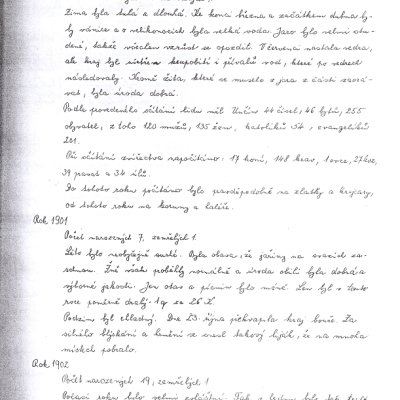 Zima byla tuhá a dlouhá. Ke konci března a začátkem dubna by-
ly vánice a o velikonocích byla velká voda. Jaro bylo velmi stu-
dené, takže všechen vzrůst se opozdil. V červenci nastala vedra,
ale kraj byl krupobití i přívalů vod, které po vedrech
následovaly. Kromě žita, které se muselo z jara z části zaorá-
vat, byla úroda dobrá.
Podle provedeného sčítání lidu měl Unčín 44 čísel, 46 bytů, 255
obyvatel, z toho 120 mužů, 135 žen, katolíků 54, evangelíků
201.
Při sčítání zvířectva napočítáno: 17 koní, 148 krav, 1 ovce, 27 koz,
39 prasat a 34 úlů.
Do tohoto roku počítáno bylo pravděpodobně na zlatky a krejcary,
od tohoto roku na koruny a haléře.
Rok 1901
Počet narozených 7, zemřelých 1.
Léto bylo neobyčejně suché. Byla obava, že jařiny na úvozích za-
schnou. Žně však proběhly normálně a úroda obilí byla dobrá a
výborné jakosti. Jen otav a pícnin bylo méně. Len byl v tomto
roce poměrně drahý - 1 q za 26 K.
Podzim byl chladný. Dne 23. října překvapila kraj bouře. Za
silného blýskání a hřmění se snesl takový liják, že na mnoha
místech pobralo.
Rok 1902
Počet narozených 19, zemřelých 1
Počasí roku bylo velmi zvláštní. Tak v lednu bylo